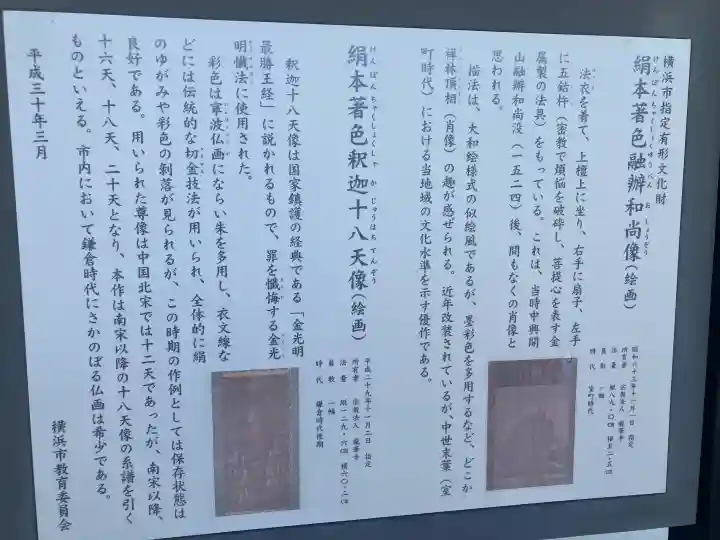 横浜市指定有形文化財
けんぽんちゃくしょくゆうべんおしょうぞう
絹本著色融辦和尚像（絵画）
昭和六十三年十一月一日 指定
所有者 宗教法人 龍華寺
員数 一幅
時代 室町時代
法衣を着て、上檀上に坐り、右手に扇子、左手
に五鈷杵（密教で煩悩を破砕し、菩提心を表す金
属製の法具）をもっている。これは、当時中興開
山融辦和尚没（一五二四）後、間もなくの肖像と
思われる。
描法は、大和絵様式の似絵風であるが、墨彩色を多用するなど、どこか
禅林頂相（肖像）の趣が感ぜられる。近年改装されているが、中世末葉（室
町時代）における当地域の文化水準を示す優作である。
けんぽんちゃくしょくしゃかじゅうはちてんぞう
絹本著色釈迦十八天像（絵画）
平成二十九年十一月二日 指定
所有者 宗教法人 龍華寺
法量 縦一二九・六㎝ 横六〇・二㎝
員数 一幅
時代 鎌倉時代後期
釈迦十八天像は国家鎮護の経典である「金光明
最勝王経」に説かれるもので、罪を懺悔する金光
明懺法に使用された。
彩色は寧波仏画にならい朱を多用し、衣文線な
どには伝統的な切金技法が用いられ、全体的に絹
のゆがみや彩色の剝落が見られるが、この時期の作例としては保存状態は
良好である。用いられた尊像は中国北宋では十二天であったが、南宋以降、
十六天、十八天、二十天となり、本作は南宋以降の十八天像の系譜を引く
ものといえる。市内において鎌倉時代にさかのぼる仏画は希少である。
平成三十年三月
横浜市教育委員会